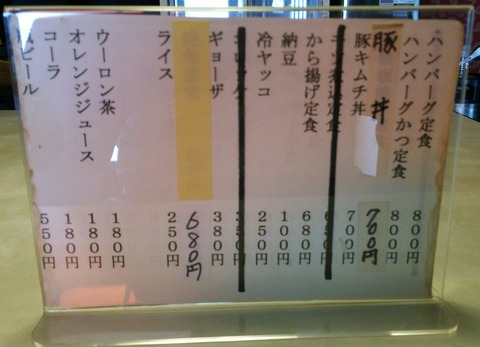 ハンバーグ定食 800円
ハンバーグかつ定食 800円
豚 丼 700円
豚キムチ丼 700円
から揚げ定食 600円
納豆 100円
冷ヤッコ 250円
ギョーザ 380円
680円
ライス 250円
ウーロン茶 180円
オレンジジュース 180円
コーラ 180円
ビール 550円